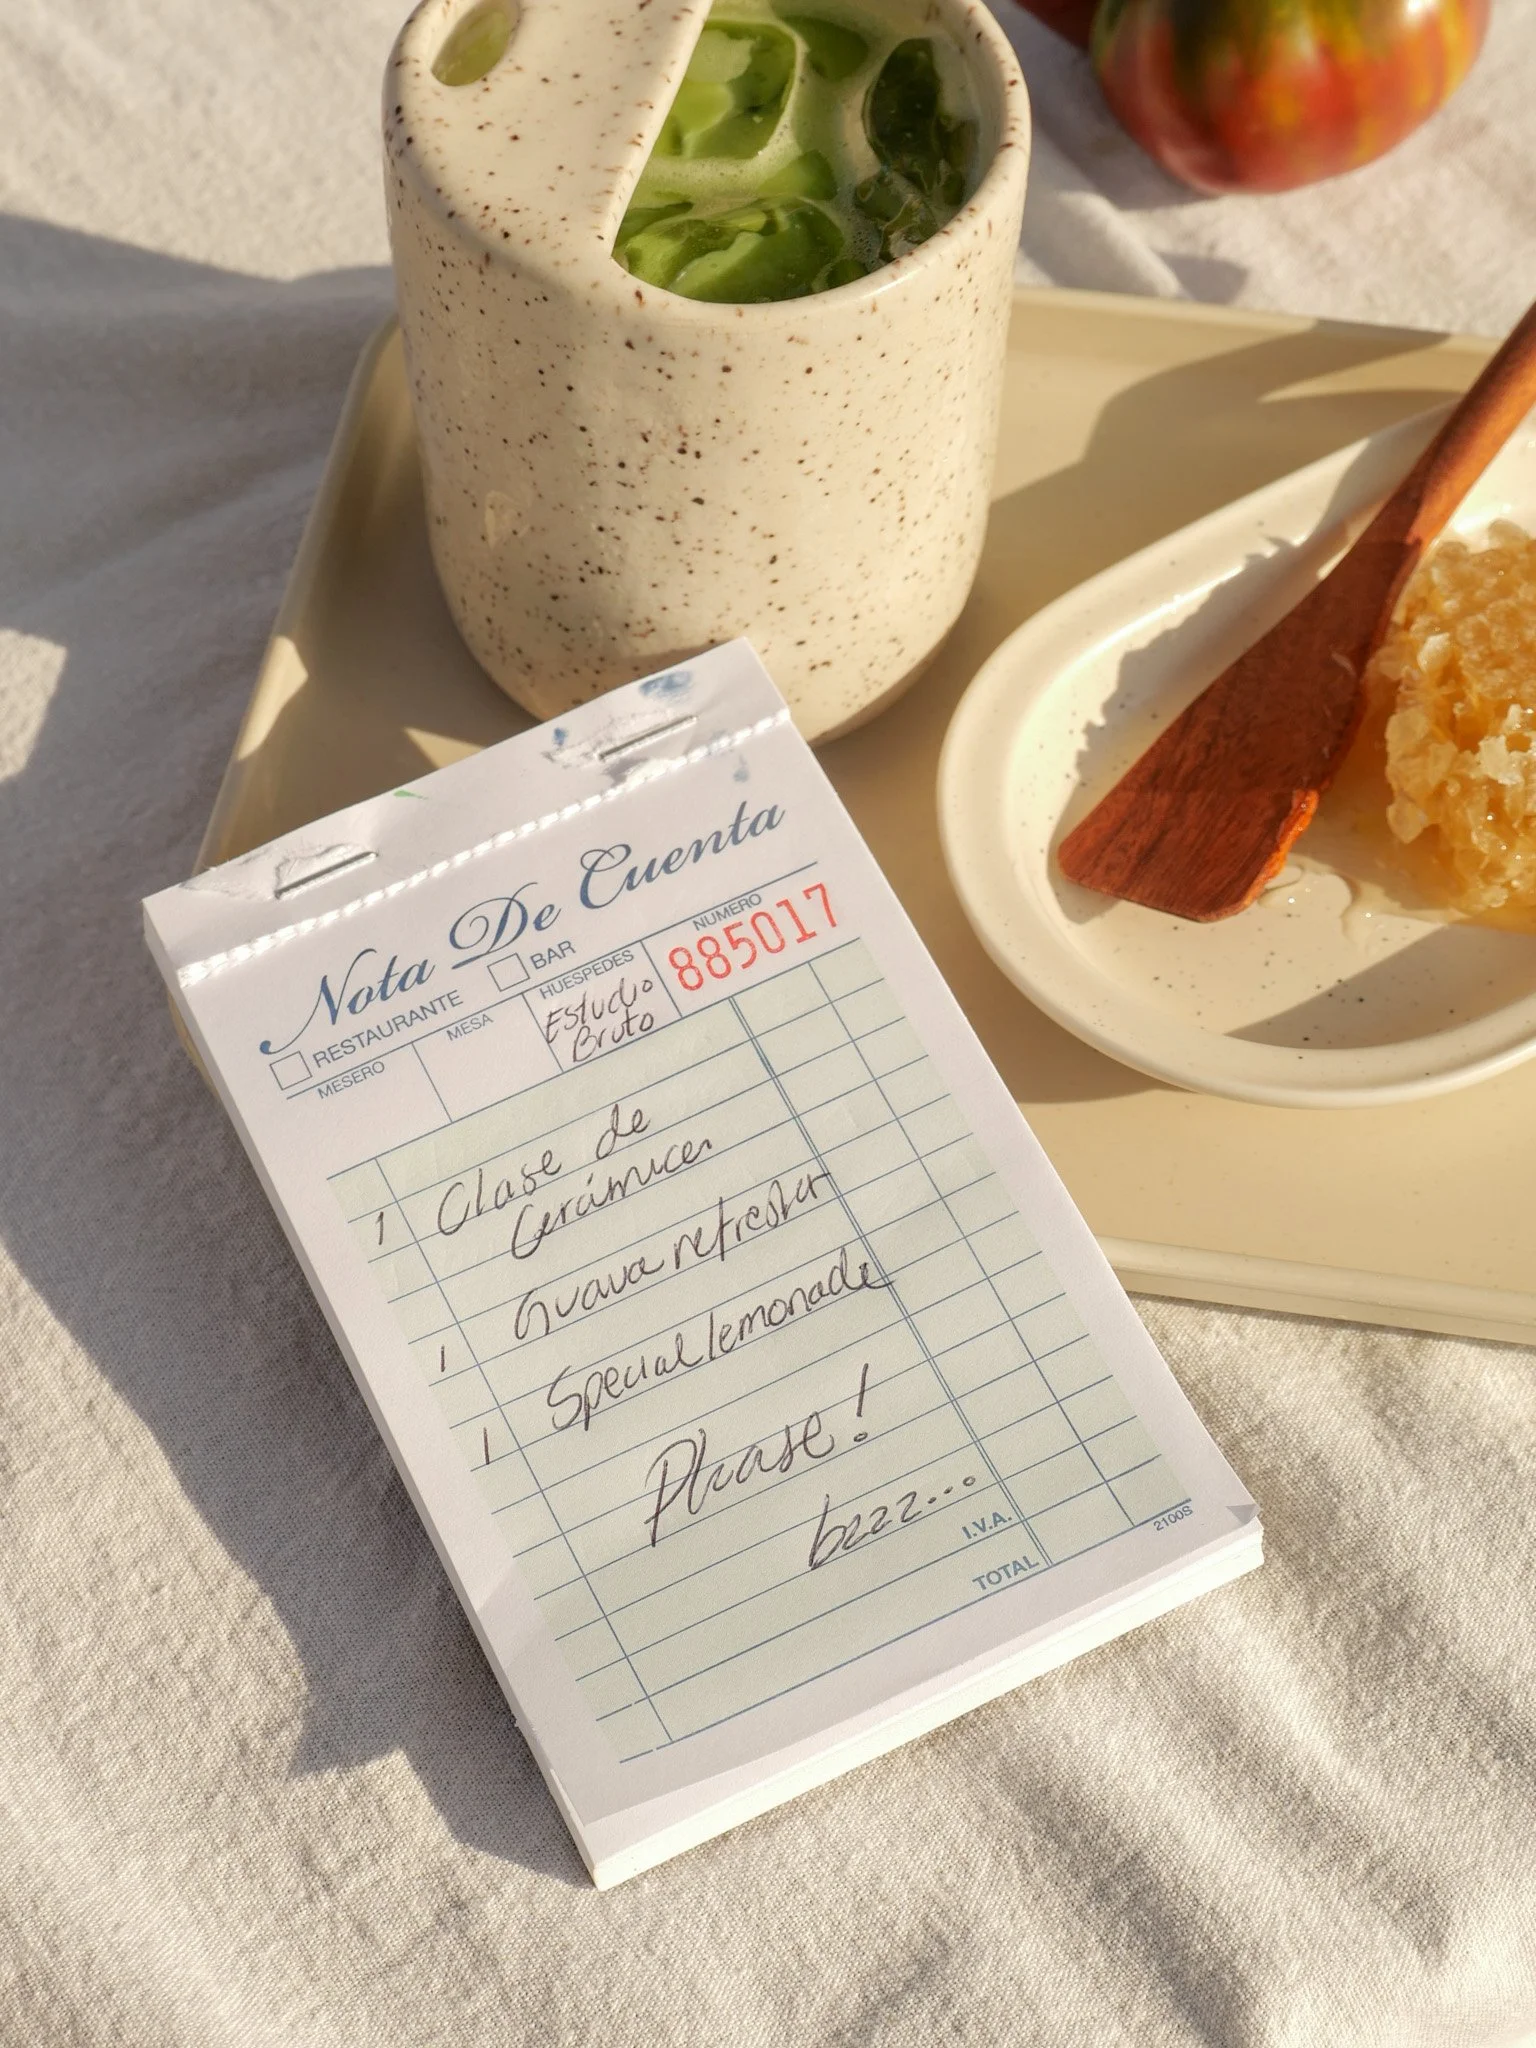 Nota De Cuenta
RESTAURANTE
BAR
MESERO
MESA
HUESPEDES
Estudio
Bruto
NUMERO
885017
1 Clase de
Cerámica
1 Guava refresher
1 Special lemonade
Please!
bzzz...
I.V.A.
TOTAL
2100S